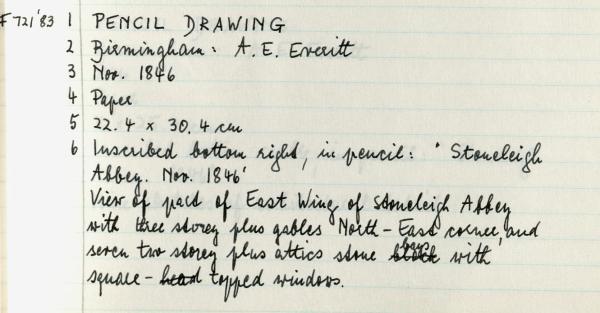 F721'83 1 PENCIL DRAWING
2 Birmingham: A. E. Everitt
3 Nov. 1846
4 Paper
5 22.4 x 30.4 cm
6 Inscribed bottom right, in pencil: 'Stoneleigh
Abbey. Nov. 1846'
View of part of East Wing of Stoneleigh Abbey
with three storey plus gables North-East corner, and
seven two storey plus attics stone with
square-head topped windows.